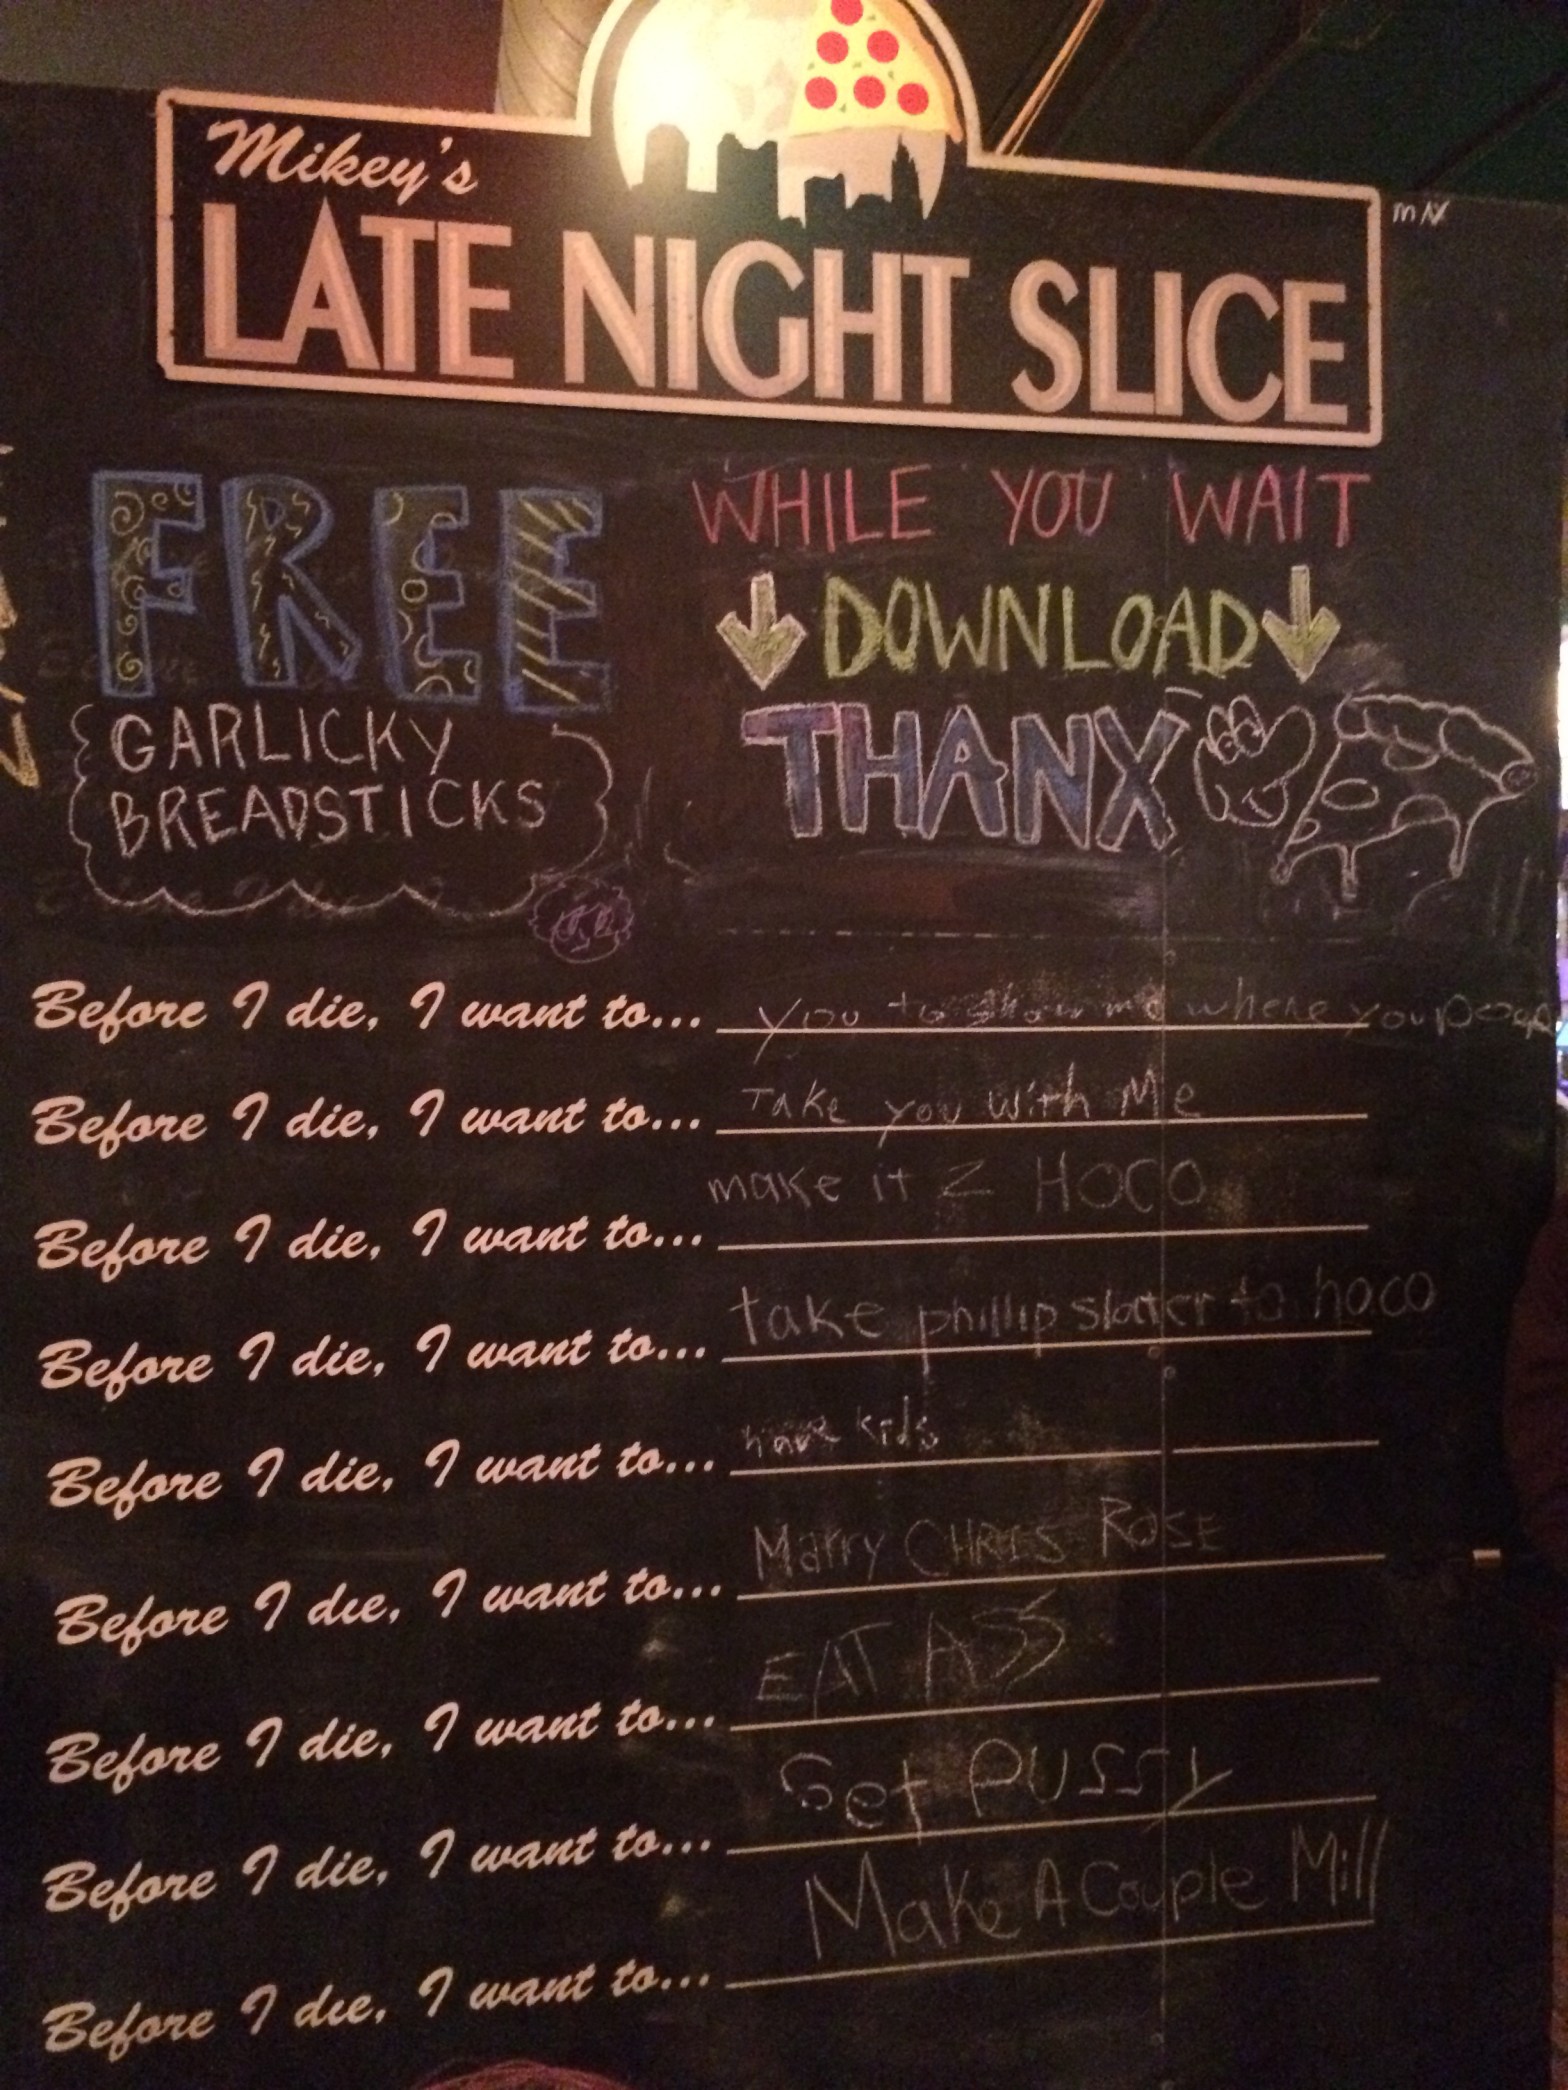 Mikey's
LATE NIGHT SLICE
MAX
FREE
GARLICKY
BREADSTICKS
WHILE YOU WAIT
DOWNLOAD
THANX
Before I die, I want to... you to show me where you poop
Before I die, I want to... Take you with Me
Before I die, I want to... make it 2 HOCO
Before I die, I want to... take phillip slater to hoco
Before I die, I want to... have kids
Before I die, I want to... Marry CHRIS ROSE
Before I die, I want to... EAT ASS
Before I die, I want to... Get PUSSY
Before I die, I want to... Make A Couple Mill